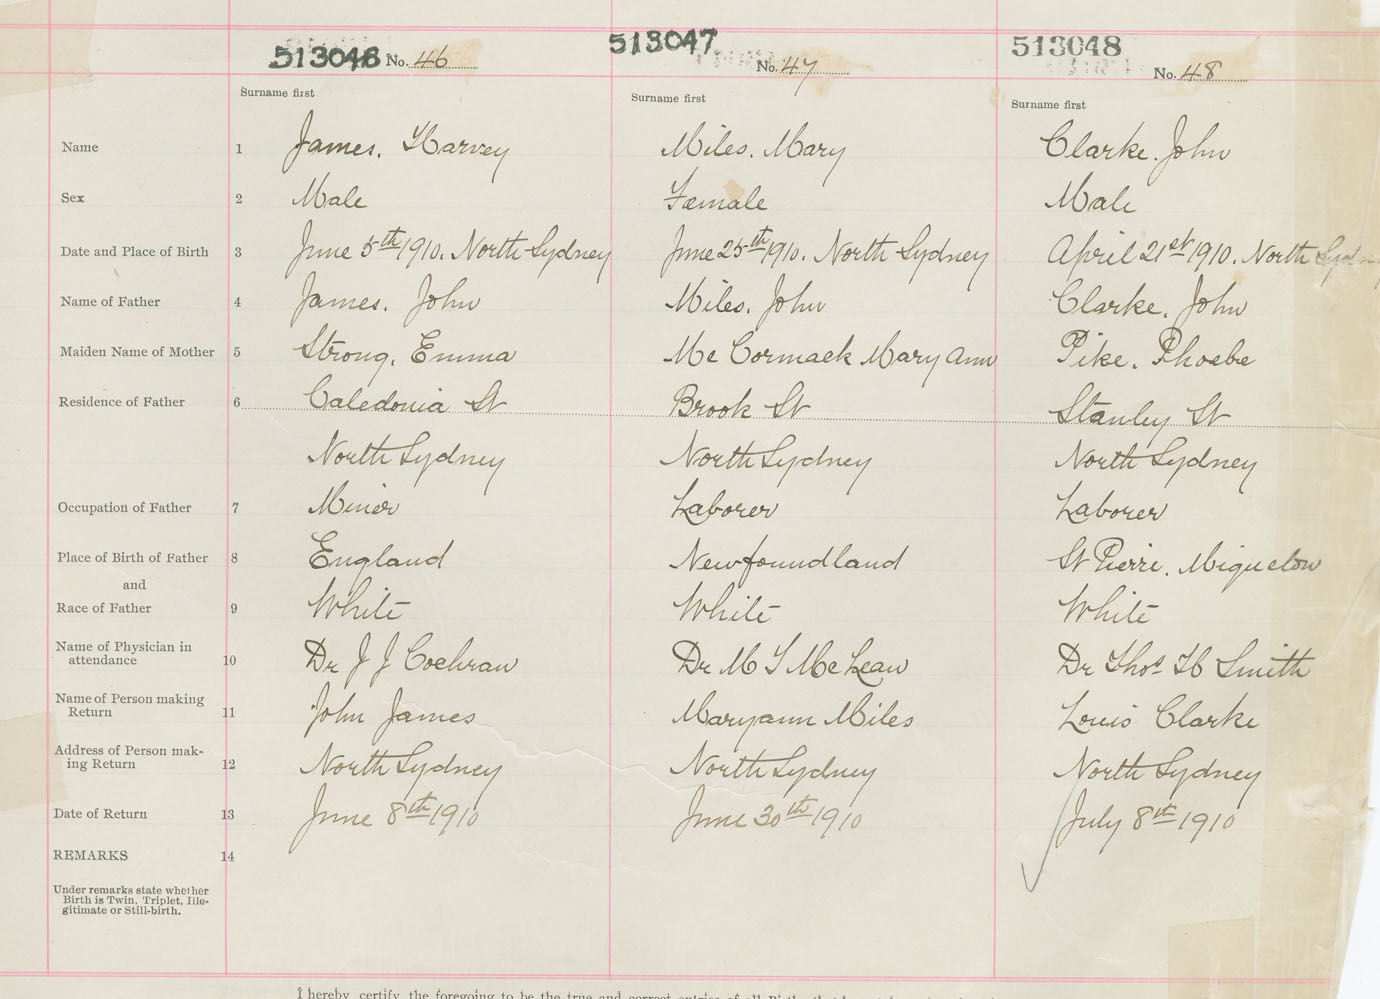 513046 No. 46 513047 No. 47 513048 No. 48
Surname first Surname first Surname first
Name 1 James. Harvey Miles. Mary Clarke. John
Sex 2 Male Female Male
Date and Place of Birth 3 June 5th 1910. North Sydney June 25th 1910. North Sydney April 21st 1910. North Sydney
Name of Father 4 James. John Miles. John Clarke. John
Maiden Name of Mother 5 Strong. Emma McCormack Mary Ann Pike. Phoebe
Residence of Father 6 Caledonia St Brook St Stanley St
North Sydney North Sydney North Sydney
Occupation of Father 7 Miner Laborer Laborer
Place of Birth of Father 8 England Newfoundland St Pierre. Miquelon
and
Race of Father 9 White White White
Name of Physician in
attendance 10 Dr J J Cochran Dr M T McLean Dr Thos H Smith
Name of Person making
Return 11 John James Maryann Miles Louis Clarke
Address of Person mak-
ing Return 12 North Sydney North Sydney North Sydney
Date of Return 13 June 8th 1910 June 30th 1910 July 8th 1910
REMARKS 14
Under remarks state whether
Birth is Twin, Triplet, Ille-
gitimate or Still-birth.
I hereby certify the foregoing to be the true and correct entries of all Births